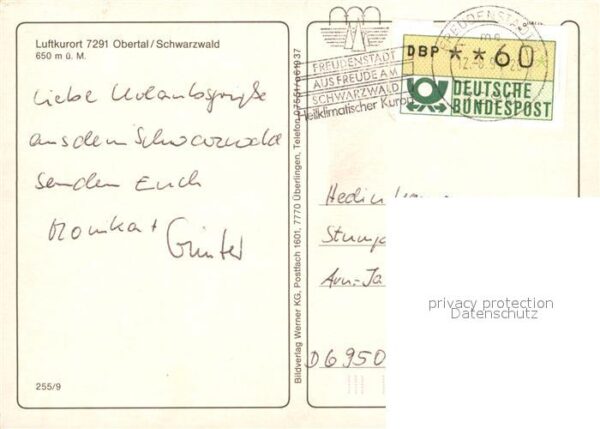 Luftkurort 7291 Obertal/Schwarzwald
650 m ü. M.
Liebe Urlaubsgrüße
aus dem Schwarzwald
senden Euch
Monika + Günter
255/9
Bildverlag Werner KG, Postfach 1601, 7770 Überlingen, Telefon 07551/61937
FREUDENSTADT
AUS FREUDE AM
SCHWARZWALD
Heilklimatischer Kurort
FREUDENSTADT
DBP **60
DEUTSCHE
BUNDESPOST
D 6950
privacy protection
Datenschutz